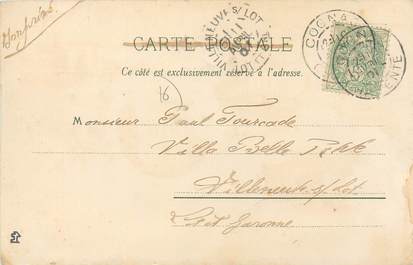 Imprimé
CARTE POSTALE
Ce côté est exclusivement réservé à l'adresse.
VILLENEUVE S/ LOT
LOT ET
COGNAC
16
Monsieur Paul Fourcade
Villa Belle
Villeneuve s/ Lot
Lot et Garonne